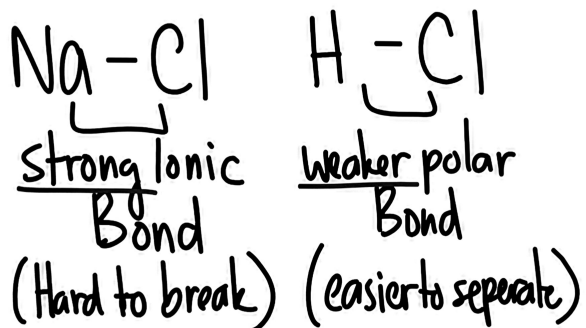 Na - Cl
strong Ionic
Bond
(Hard to break)
H - Cl
weaker polar
Bond
(easier to seperate)